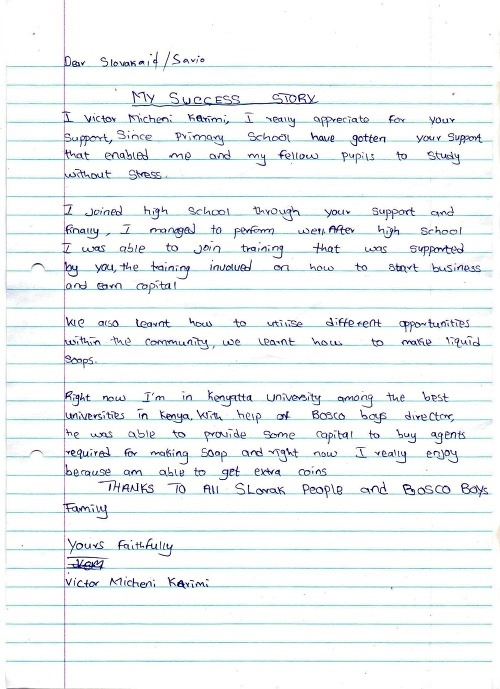 Dear Slovakaid/Savio
MY SUCCESS STORY
I Victor Micheni Karimi, I really appreciate for your
Support, Since Primary School have gotten your support
that enabled me and my fellow pupils to study
without stress.
I Joined high School through your support and
finally, I managed to perform well. After high school
I was able to join training that was supported
by you, the taining involved on how to start business
and earn capital
We also learnt how to utilise different opportunities
within the community, we learnt how to make liquid
soaps.
Right now I'm in Kenyatta University among the best
universities in Kenya. With help of Bosco boys director,
he was able to provide some capital to buy agents
required for making soap and right now I really enjoy
because am able to get extra coins
THANKS TO All SLovak People and BOSCO BOYS
Family
Yours Faithfully
Victor Micheni Karimi